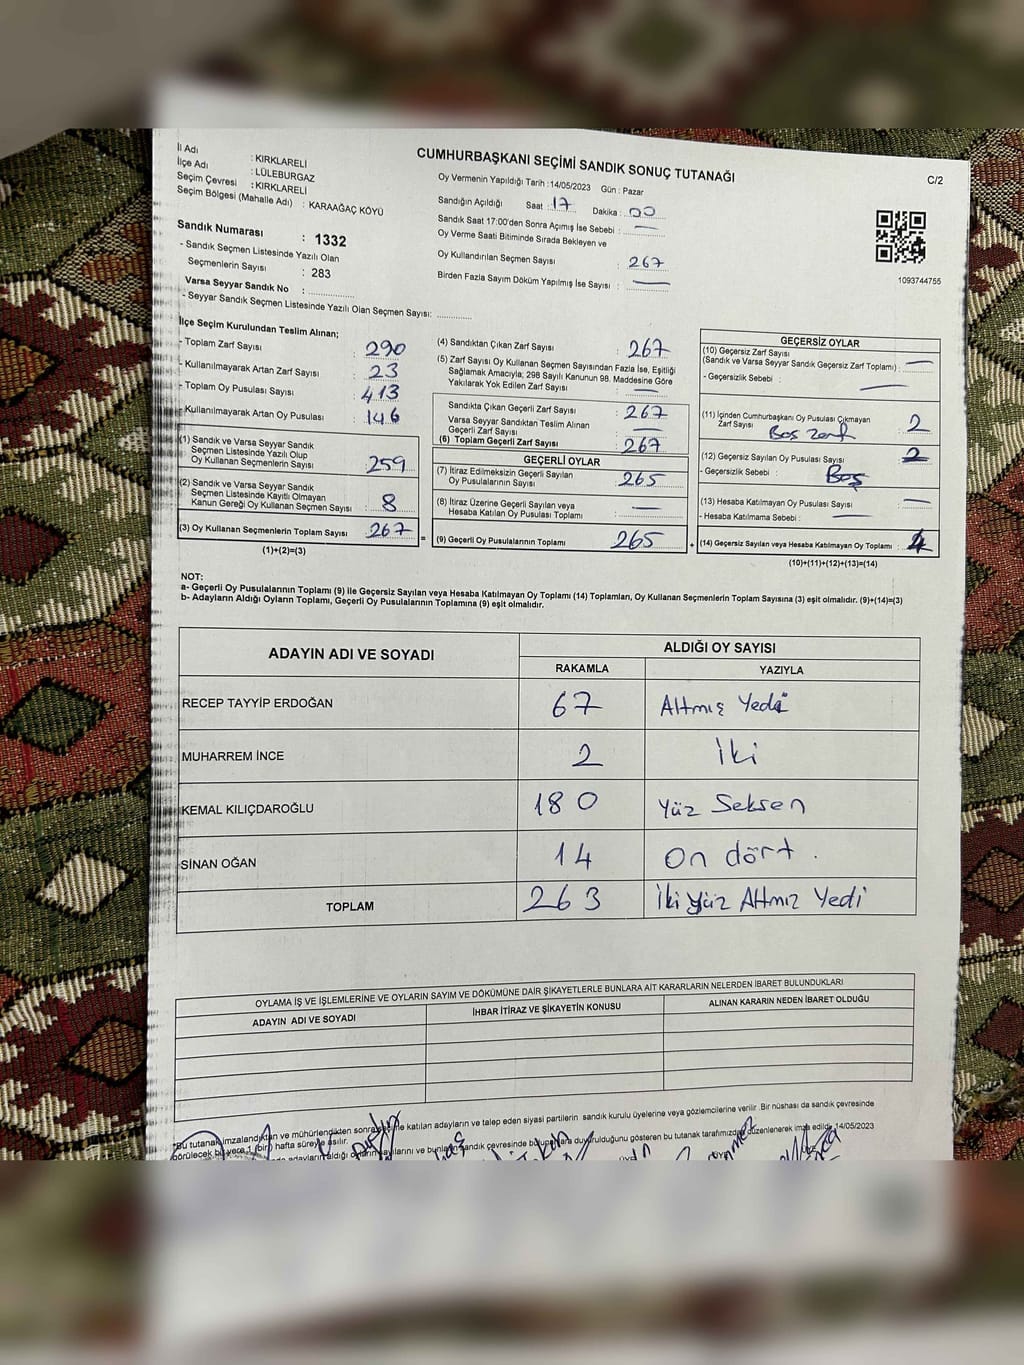 CUMHURBAŞKANI SEÇİMİ SANDIK SONUÇ TUTANAĞI
C/2
İl Adı : KIRKLARELİ
İlçe Adı : LÜLEBURGAZ
Seçim Çevresi : KIRKLARELİ
Seçim Bölgesi (Mahalle Adı) : KARAAĞAÇ KÖYÜ
Sandık Numarası : 1332
- Sandık Seçmen Listesinde Yazılı Olan
Seçmenlerin Sayısı : 283
Varsa Seyyar Sandık No :
- Seyyar Sandık Seçmen Listesinde Yazılı Olan Seçmen Sayısı:
Oy Vermenin Yapıldığı Tarih :14/05/2023 Gün : Pazar
Sandığın Açıldığı Saat : 17 Dakika : 00
Sandık Saat 17:00'den Sonra Açımış İse Sebebi : —
Oy Verme Saati Bitiminde Sırada Bekleyen ve
Oy Kullandırılan Seçmen Sayısı : 267
Birden Fazla Sayım Döküm Yapılmış İse Sayısı : —
1093744755
İlçe Seçim Kurulundan Teslim Alınan;
- Toplam Zarf Sayısı : 290
- Kullanılmayarak Artan Zarf Sayısı : 23
- Toplam Oy Pusulası Sayısı : 413
- Kullanılmayarak Artan Oy Pusulası : 146
(1) Sandık ve Varsa Seyyar Sandık
Seçmen Listesinde Yazılı Olup
Oy Kullanan Seçmenlerin Sayısı : 259
(2) Sandık ve Varsa Seyyar Sandık
Seçmen Listesinde Kayıtlı Olmayan
Kanun Gereği Oy Kullanan Seçmen Sayısı : 8
(3) Oy Kullanan Seçmenlerin Toplam Sayısı : 267
(1)+(2)=(3)
(4) Sandıktan Çıkan Zarf Sayısı : 267
(5) Zarf Sayısı Oy Kullanan Seçmen Sayısından Fazla İse, Eşitliği
Sağlamak Amacıyla; 298 Sayılı Kanunun 98. Maddesine Göre
Yakılarak Yok Edilen Zarf Sayısı : —
Sandıkta Çıkan Geçerli Zarf Sayısı : 267
Varsa Seyyar Sandıktan Teslim Alınan
Geçerli Zarf Sayısı : —
(6) Toplam Geçerli Zarf Sayısı : 267
GEÇERLİ OYLAR
(7) İtiraz Edilmeksizin Geçerli Sayılan
Oy Pusulalarının Sayısı : 265
(8) İtiraz Üzerine Geçerli Sayılan veya
Hesaba Katılan Oy Pusulası Toplamı : —
= (9) Geçerli Oy Pusulalarının Toplamı 265
GEÇERSİZ OYLAR
(10) Geçersiz Zarf Sayısı
(Sandık ve Varsa Seyyar Sandık Geçersiz Zarf Toplamı) : —
- Geçersizlik Sebebi : —
(11) İçinden Cumhurbaşkanı Oy Pusulası Çıkmayan
Zarf Sayısı : 2
Boş zarf
(12) Geçersiz Sayılan Oy Pusulası Sayısı : 2
- Geçersizlik Sebebi : Boş
(13) Hesaba Katılmayan Oy Pusulası Sayısı : —
- Hesaba Katılmama Sebebi : —
+ (14) Geçersiz Sayılan veya Hesaba Katılmayan Oy Toplamı : 4
(10)+(11)+(12)+(13)=(14)
NOT:
a- Geçerli Oy Pusulalarının Toplamı (9) ile Geçersiz Sayılan veya Hesaba Katılmayan Oy Toplamı (14) Toplamları, Oy Kullanan Seçmenlerin Toplam Sayısına (3) eşit olmalıdır. (9)+(14)=(3)
b- Adayların Aldığı Oyların Toplamı, Geçerli Oy Pusulalarının Toplamına (9) eşit olmalıdır.
ADAYIN ADI VE SOYADI
ALDIĞI OY SAYISI
RAKAMLA YAZIYLA
RECEP TAYYİP ERDOĞAN 67 Altmış Yedi
MUHARREM İNCE 2 İki
KEMAL KILIÇDAROĞLU 180 Yüz Seksen
SİNAN OĞAN 14 On dört .
TOPLAM 263 İki yüz Altmız Yedi
OYLAMA İŞ VE İŞLEMLERİNE VE OYLARIN SAYIM VE DÖKÜMÜNE DAİR ŞİKAYETLERLE BUNLARA AİT KARARLARIN NELERDEN İBARET BULUNDUKLARI
ADAYIN ADI VE SOYADI İHBAR İTİRAZ VE ŞİKAYETİN KONUSU ALINAN KARARIN NEDEN İBARET OLDUĞU
"Bu tutanak imzalandıktan ve mühürlendikten sonra katılan adayların ve talep eden siyasi partilerin sandık kurulu üyelerine veya gözlemcilerine verilir .Bir nüshası da sandık çevresinde
görülecek bir yere 1 (bir) hafta süreyle asılır.
adayların aldığı oyların sayılarını ve bunların sandık çevresinde duyurulduğunu gösteren bu tutanak tarafımızdan düzenlenerek imza edildi. 14/05/2023